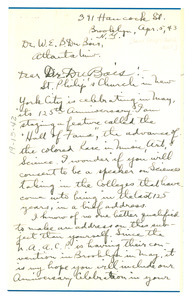 391 Hancock St.
Brooklyn, Apr. 5, 43
N.Y.
Dr. W.E.B. Du Bois,
Atlanta Univ.
Dear Dr. Du Bois:
St. Philip's Church in New
York City is celebrating in May,
its 125th Anniversary. In
story in feature called the
"Hall of Fame", the advance of
the colored Race in Music, Art,
Science. I wonder if you will
consent to be a speaker on Science
taking in the Colleges that have
come into being in the last 125
years, in a brief address
I know of no one better qualified
to make an address on this sub-
ject than yourself. Since the
N.A.A.C.P. is having their con-
vention in Brooklyn in May, it
is my hope you will include our
Anniversary Celebration in your